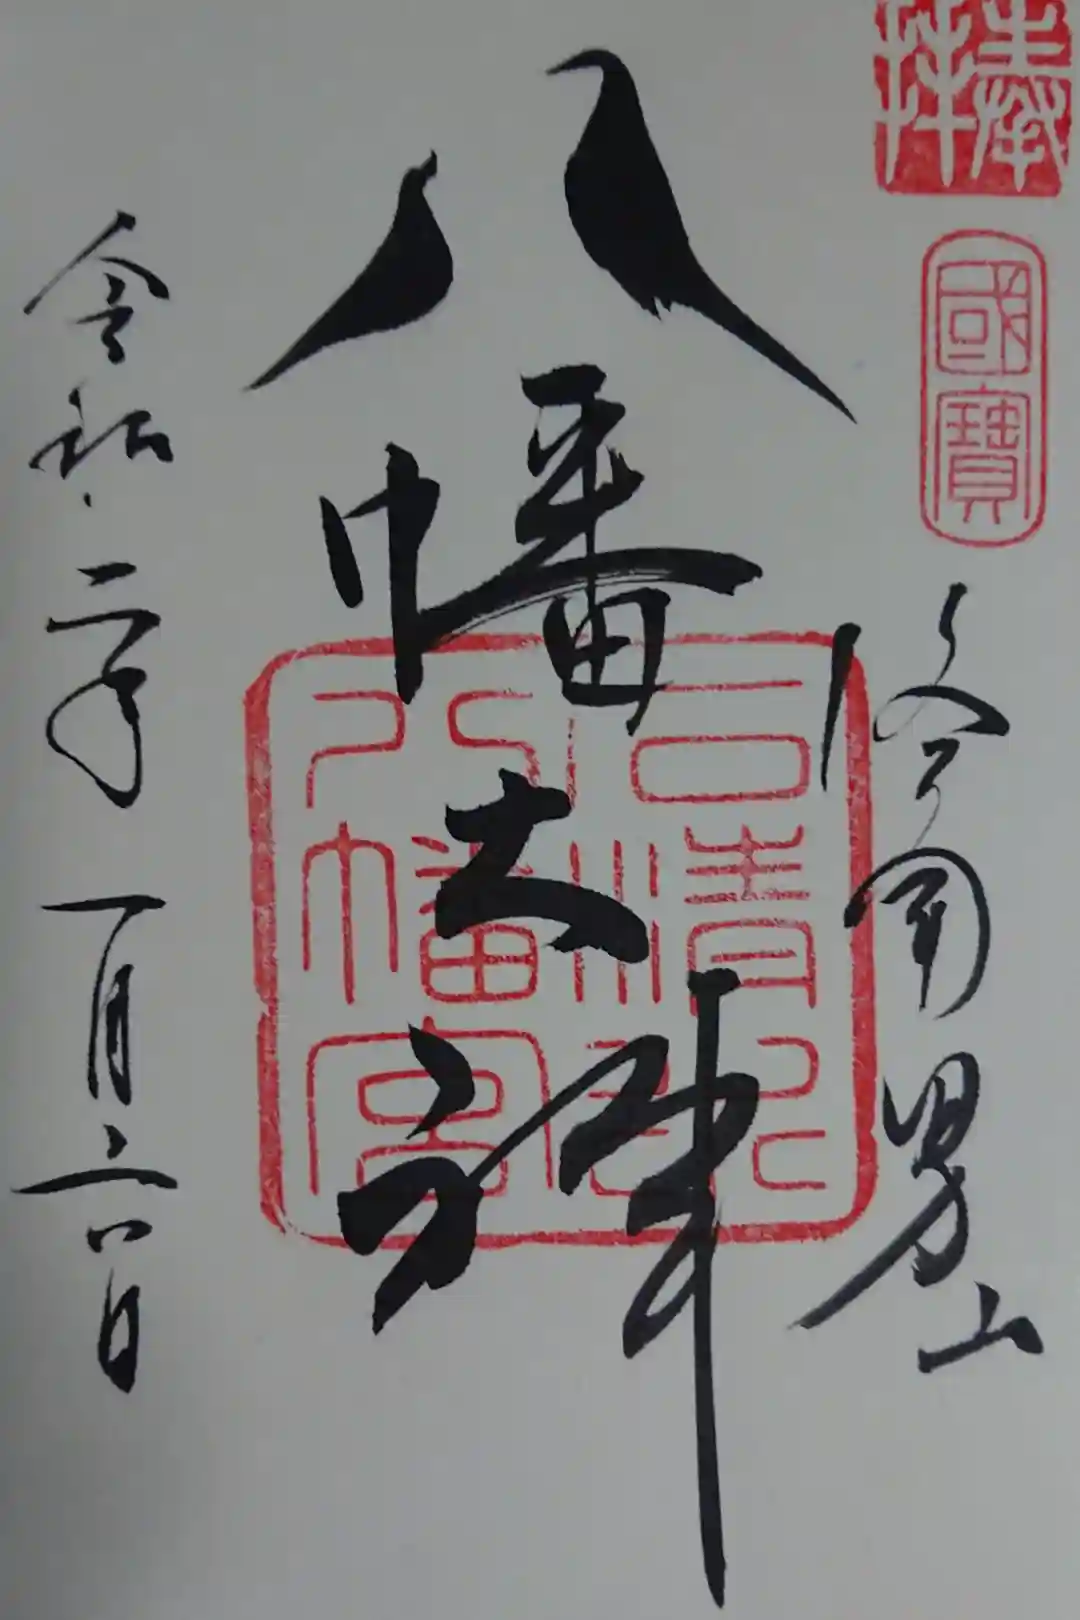 奉拝
國寶
洛南男山
八幡大神
石清水
八幡宮
令和二年一月六日